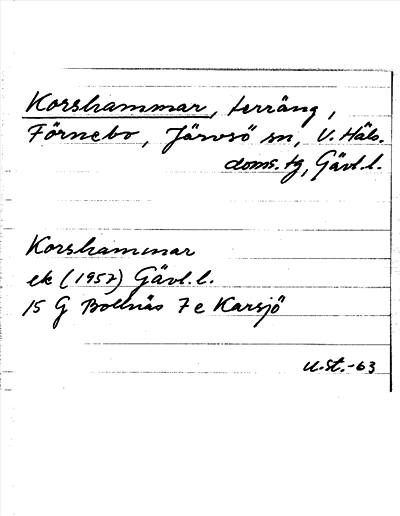 Korshammar, terräng,
Förnebo, Järvsö sn, V. Häls.
doms. tg, Gävl. l.
Korshammar
ek (1957) Gävl. l.
15 G Bollnäs 7 e Karsjö
U. St. -63